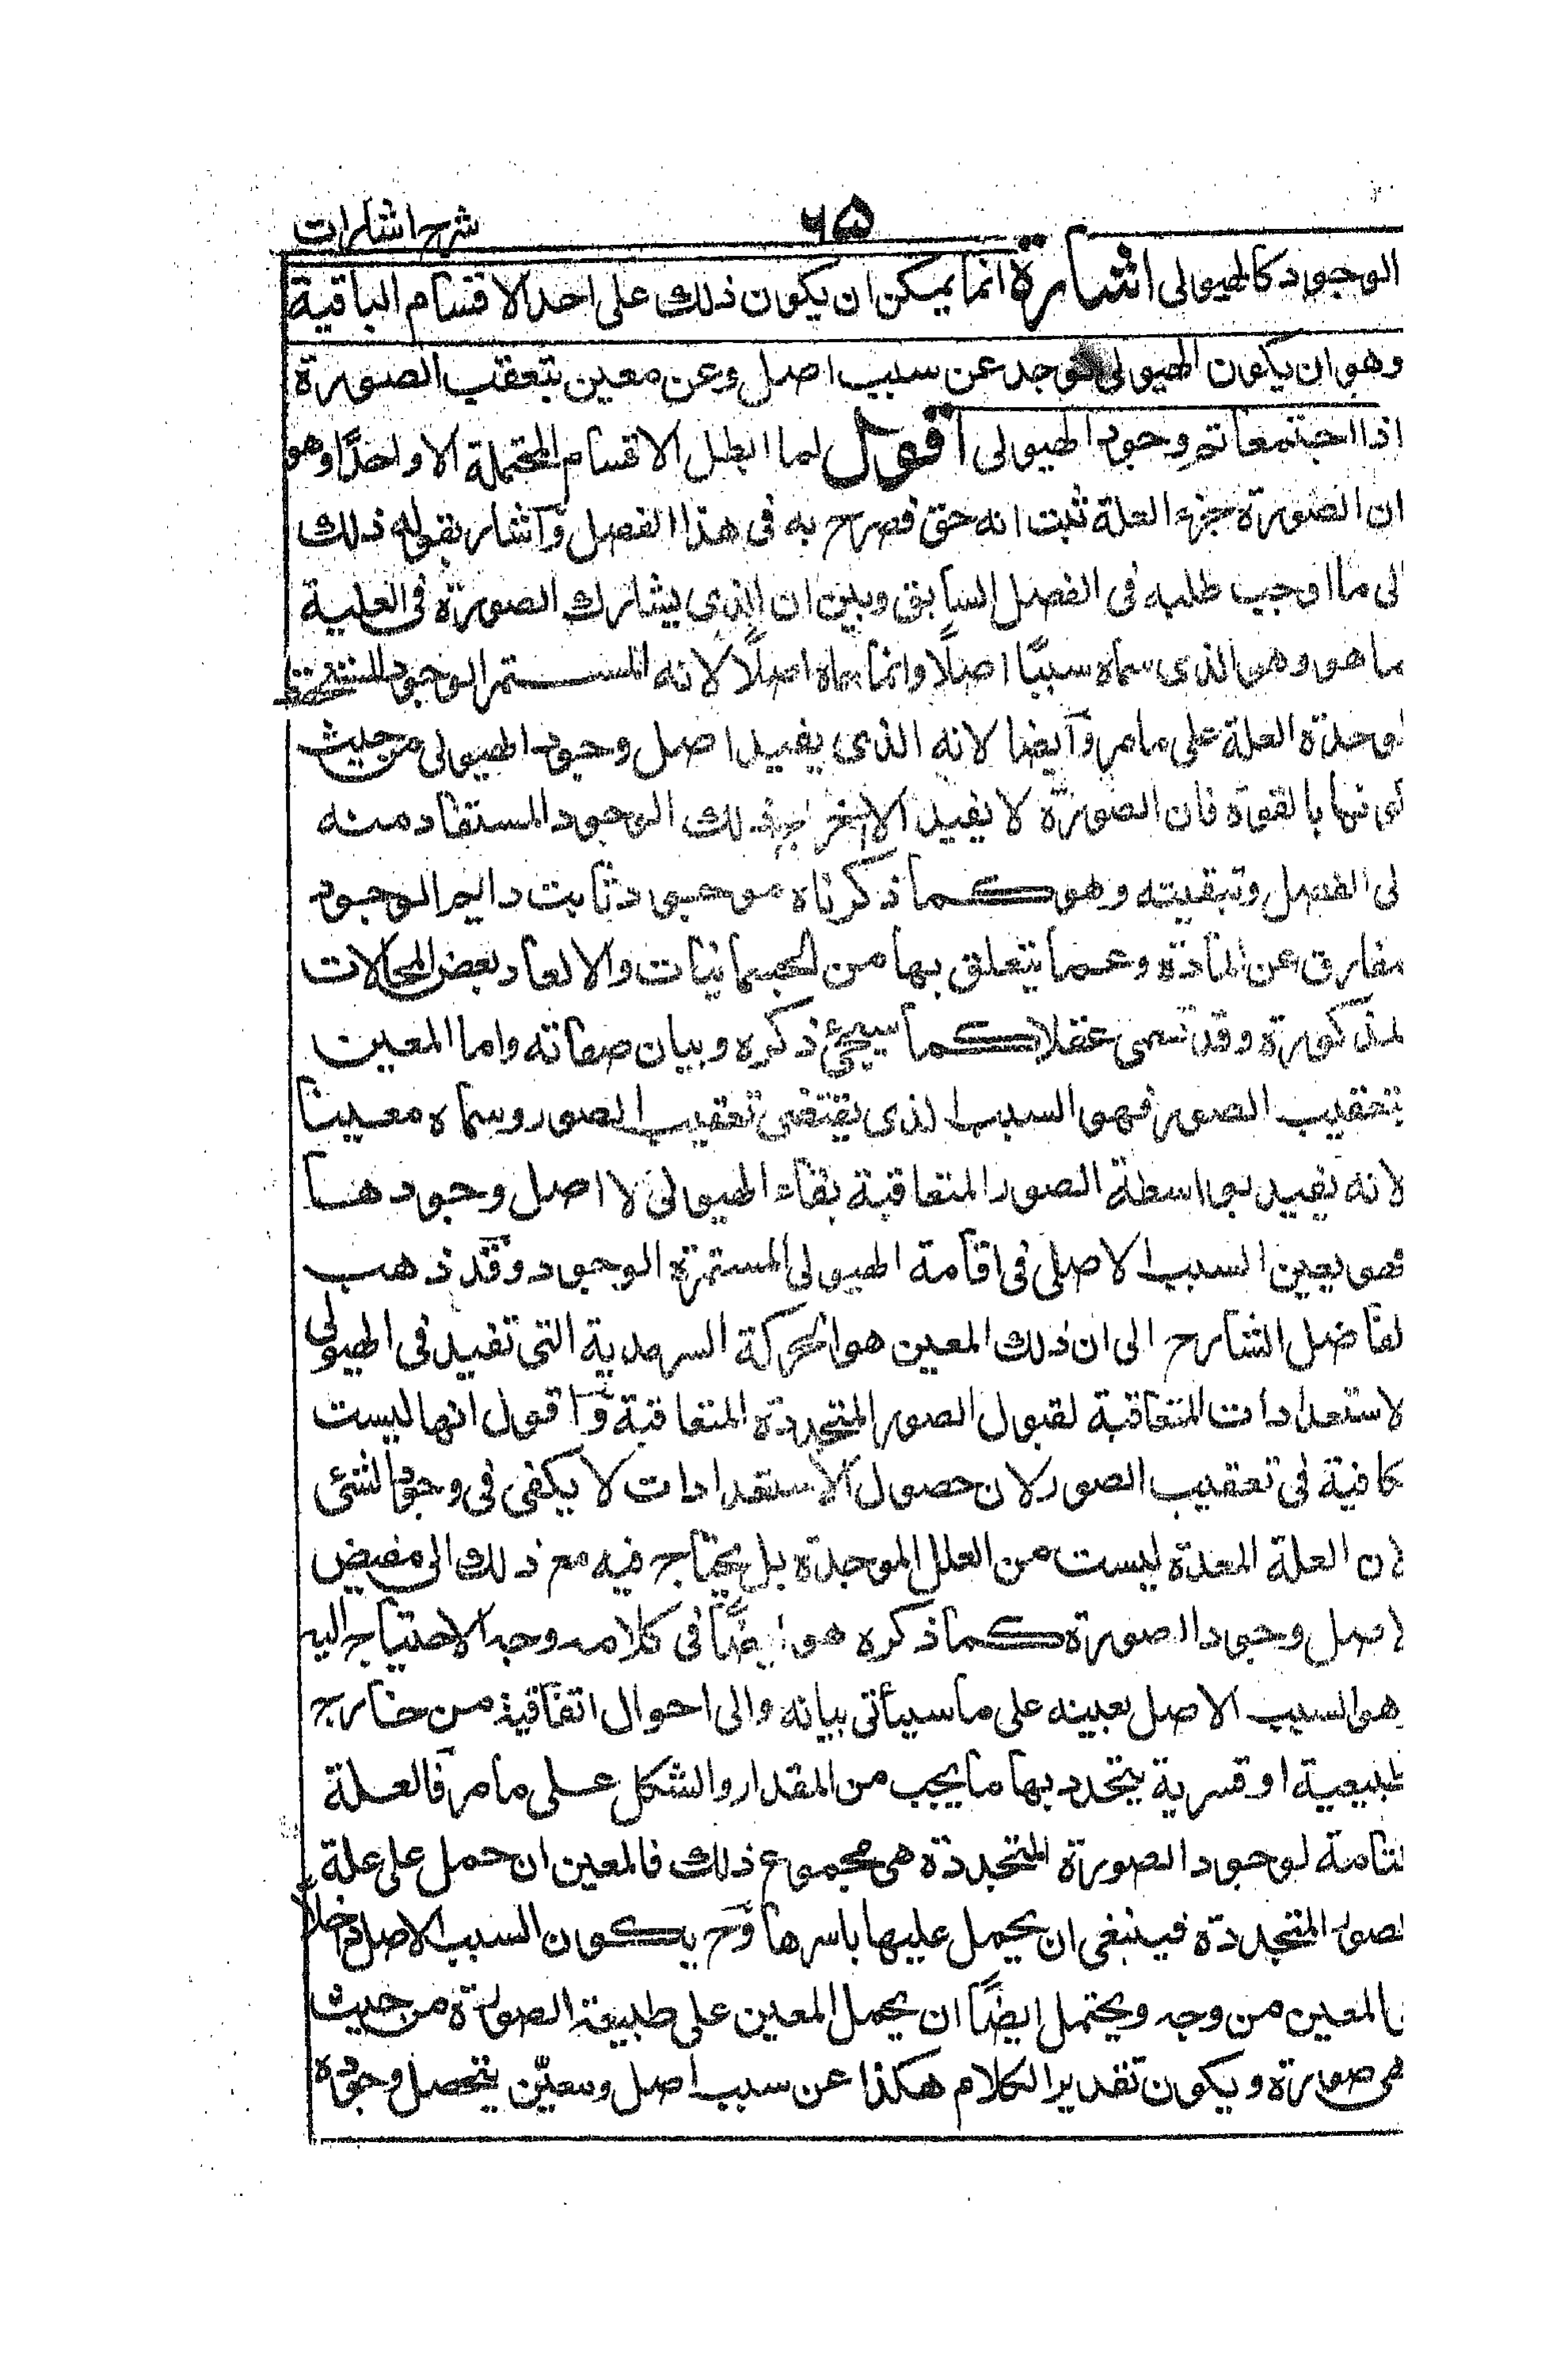 شرح اشارات
٦٥
الوجود كالهيولى اشارة انما يمكن ان يكون ذلك على احد الاقسام الباقية
وهو ان يكون الهيولى توجد عن سبب اصل وعن معين بتعقب الصورة
اذا اجتمعا تم وجود الهيولى اقول لما ابطل الاقسام المحتملة الا واحدًا وهو
ان الصورة جزء العلة ثبت انه حق فصرح به فى هذا الفصل وآشار بقوله ذلك
لى ما اوجب طلبه فى الفصل السابق وبين ان الذى يشارك الصورة فى العلية
ما هو وهو الذى سماه سببًا اصلًا وانما سماه اصلًا لانه المستمر الوجود المستحفظ
لوحدة العلة على ما مر وآيضا لانه الذى يفيد اصل وجود الهيولى من حيث
لونها بالقوة فان الصورة لا يفيد الا ذلك الوجود المستفاد منه
لى الفصل وتبقيته وهو كما ذكرناه موجود ثابت دايم الوجود
مفارق عن المادة وعما يتعلق بها من الجسمانيات والا لعاد بعض المحالات
لمذكورة وقد تسمى عقلا كما سيجئ ذكره وبيان صفاته واما المعين
بتعقيب الصور فهو السبب الذى يقتضى تعقيب الصور وسماه معينا
لانه يفيد بواسطة الصور المتعاقبة بقاء الهيولى لا اصل وجودها
فهو يعين السبب الاصلى فى اقامة الهيولى المستمرة الوجود وقد ذهب
لفاضل الشارح الى ان ذلك المعين هو الحركة السرمدية التى تفيد فى الهيولى
لاستعدادات المتعاقبة لقبول الصور المتجددة المتعاقبة وآقول انها ليست
كافية فى تعقيب الصور لان حصول الاستعدادات لا يكفى فى وجود الشئ
لان العلة المعدة ليست من العلل الموجدة بل يحتاج فيه مع ذلك الى مفيض
لاصل وجود الصورة كما ذكره هو ايضًا فى كلامه وجه الاحتياج اليه
هو السبب الاصل بعينه على ما سيأتى بيانه والى احوال اتفاقية من خارج
طبيعية او قسرية يتحدد بها ما يجب من المقدار والشكل على ما مر فالعلة
لتامة لوجود الصورة المتجددة هى مجموع ذلك فالمعين ان حمل على علة
لصور المتجددة فينبغى ان يحمل عليها باسرها وح يكون السبب الاصل داخلًا
المعين من وجه ويحتمل ايضًا ان يحمل المعين على طبيعة الصورة من حيث
هى صورة ويكون تقدير الكلام هكذا عن سبب اصل ومعيّن يتحصل وجوده